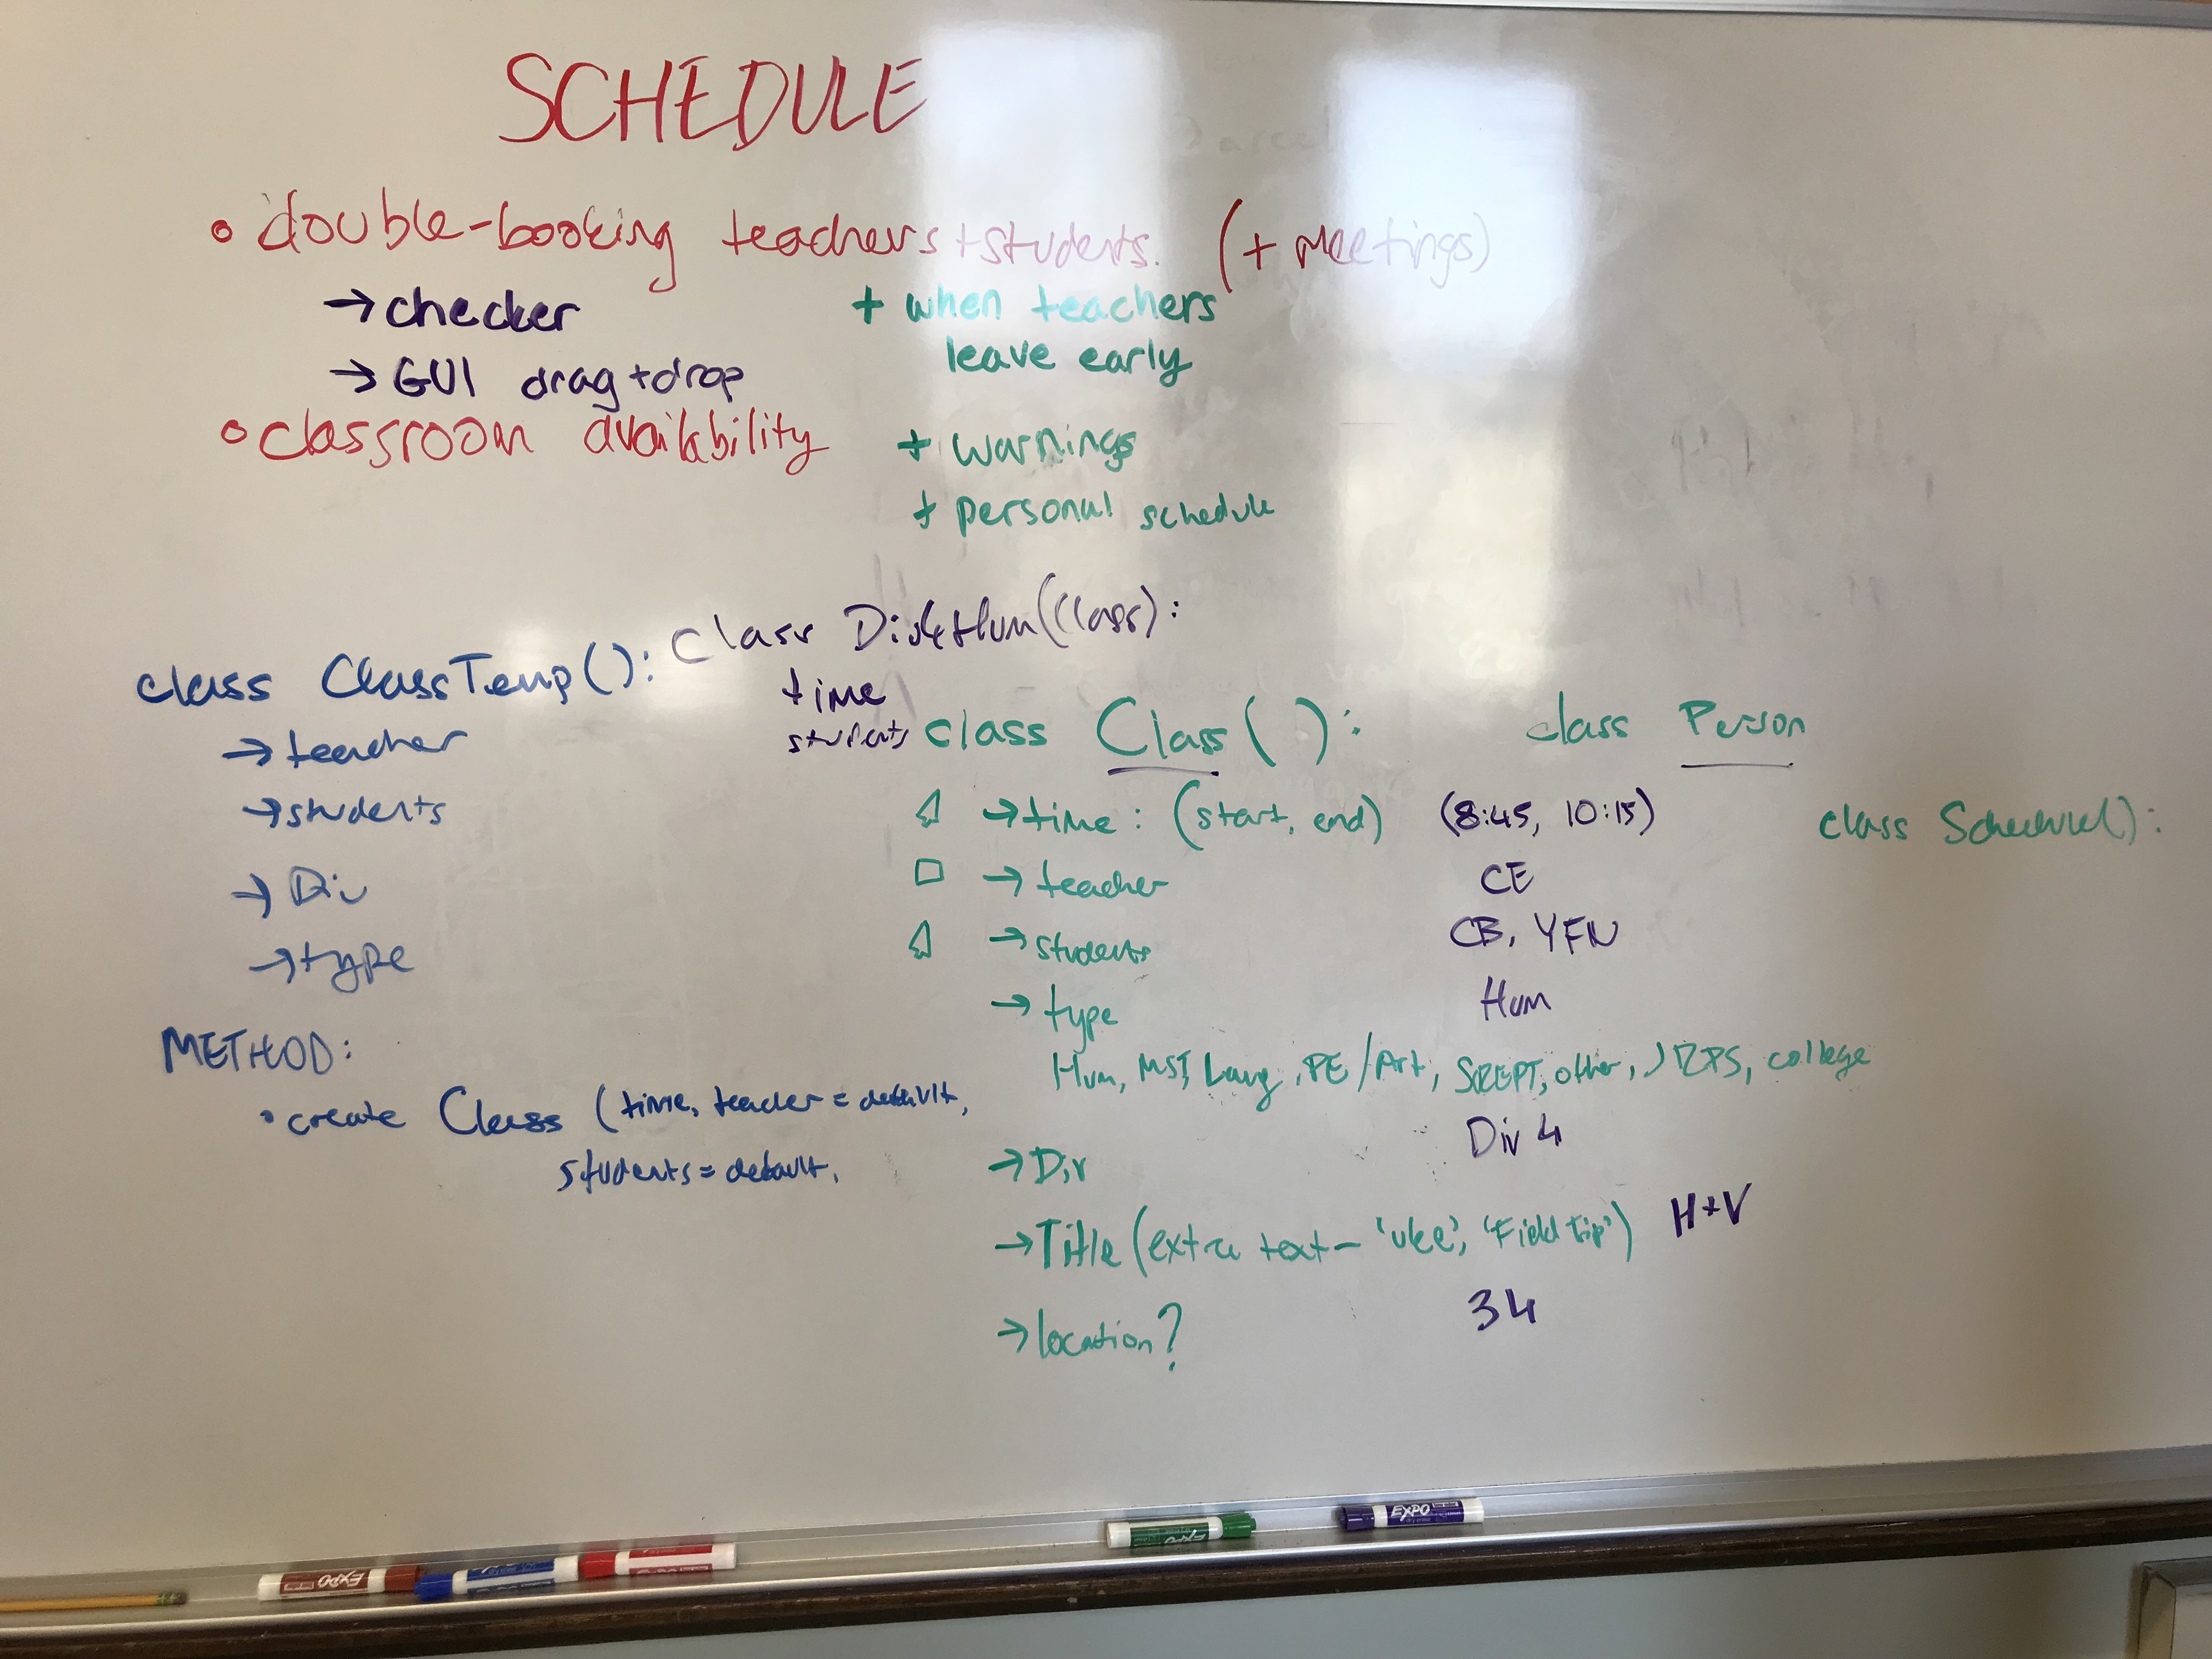 SCHEDULE
• double-booking teachers + students. (+ Meetings)
→ checker
→ GUI drag + drop
+ when teachers
leave early
• classroom availability
+ warnings
+ personal schedule
class ClassTemp():
→ teacher
→ students
→ Div
→ type
METHOD:
• create Class (time, teacher = default,
students = default,
class Div4Hum(Class):
time
students
class Class():
→ time: (start, end) (8:45, 10:15)
→ teacher CE
→ students CB, YFN
→ type Hum
Hum, MST, Lang, PE/Art, other, college
→ Div Div 4
→ Title (extra text – 'uke', 'Field trip') H+V
→ location? 34
class Person
class Schedule():
EXPO
EXPO
EXPO